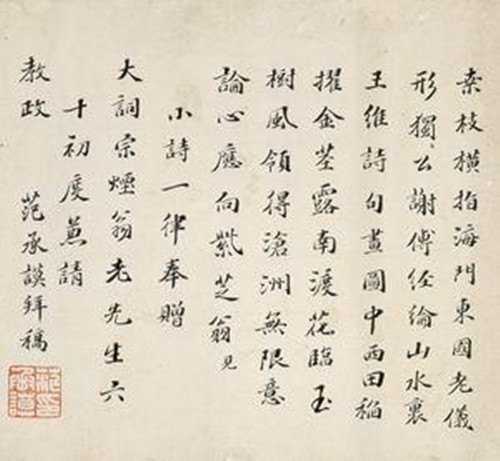 桑枝橫指海門東國老儀
形獨、公謝傅經綸山水裏
王維詩句畫圖中西田稻
擢金莖露南渡花臨玉
樹風領得滄洲無限意
論心應向紫芝翁見
小詩一律奉贈
大詞宗煙翁老先生六
十初度兼請
教政 范承謨拜稿